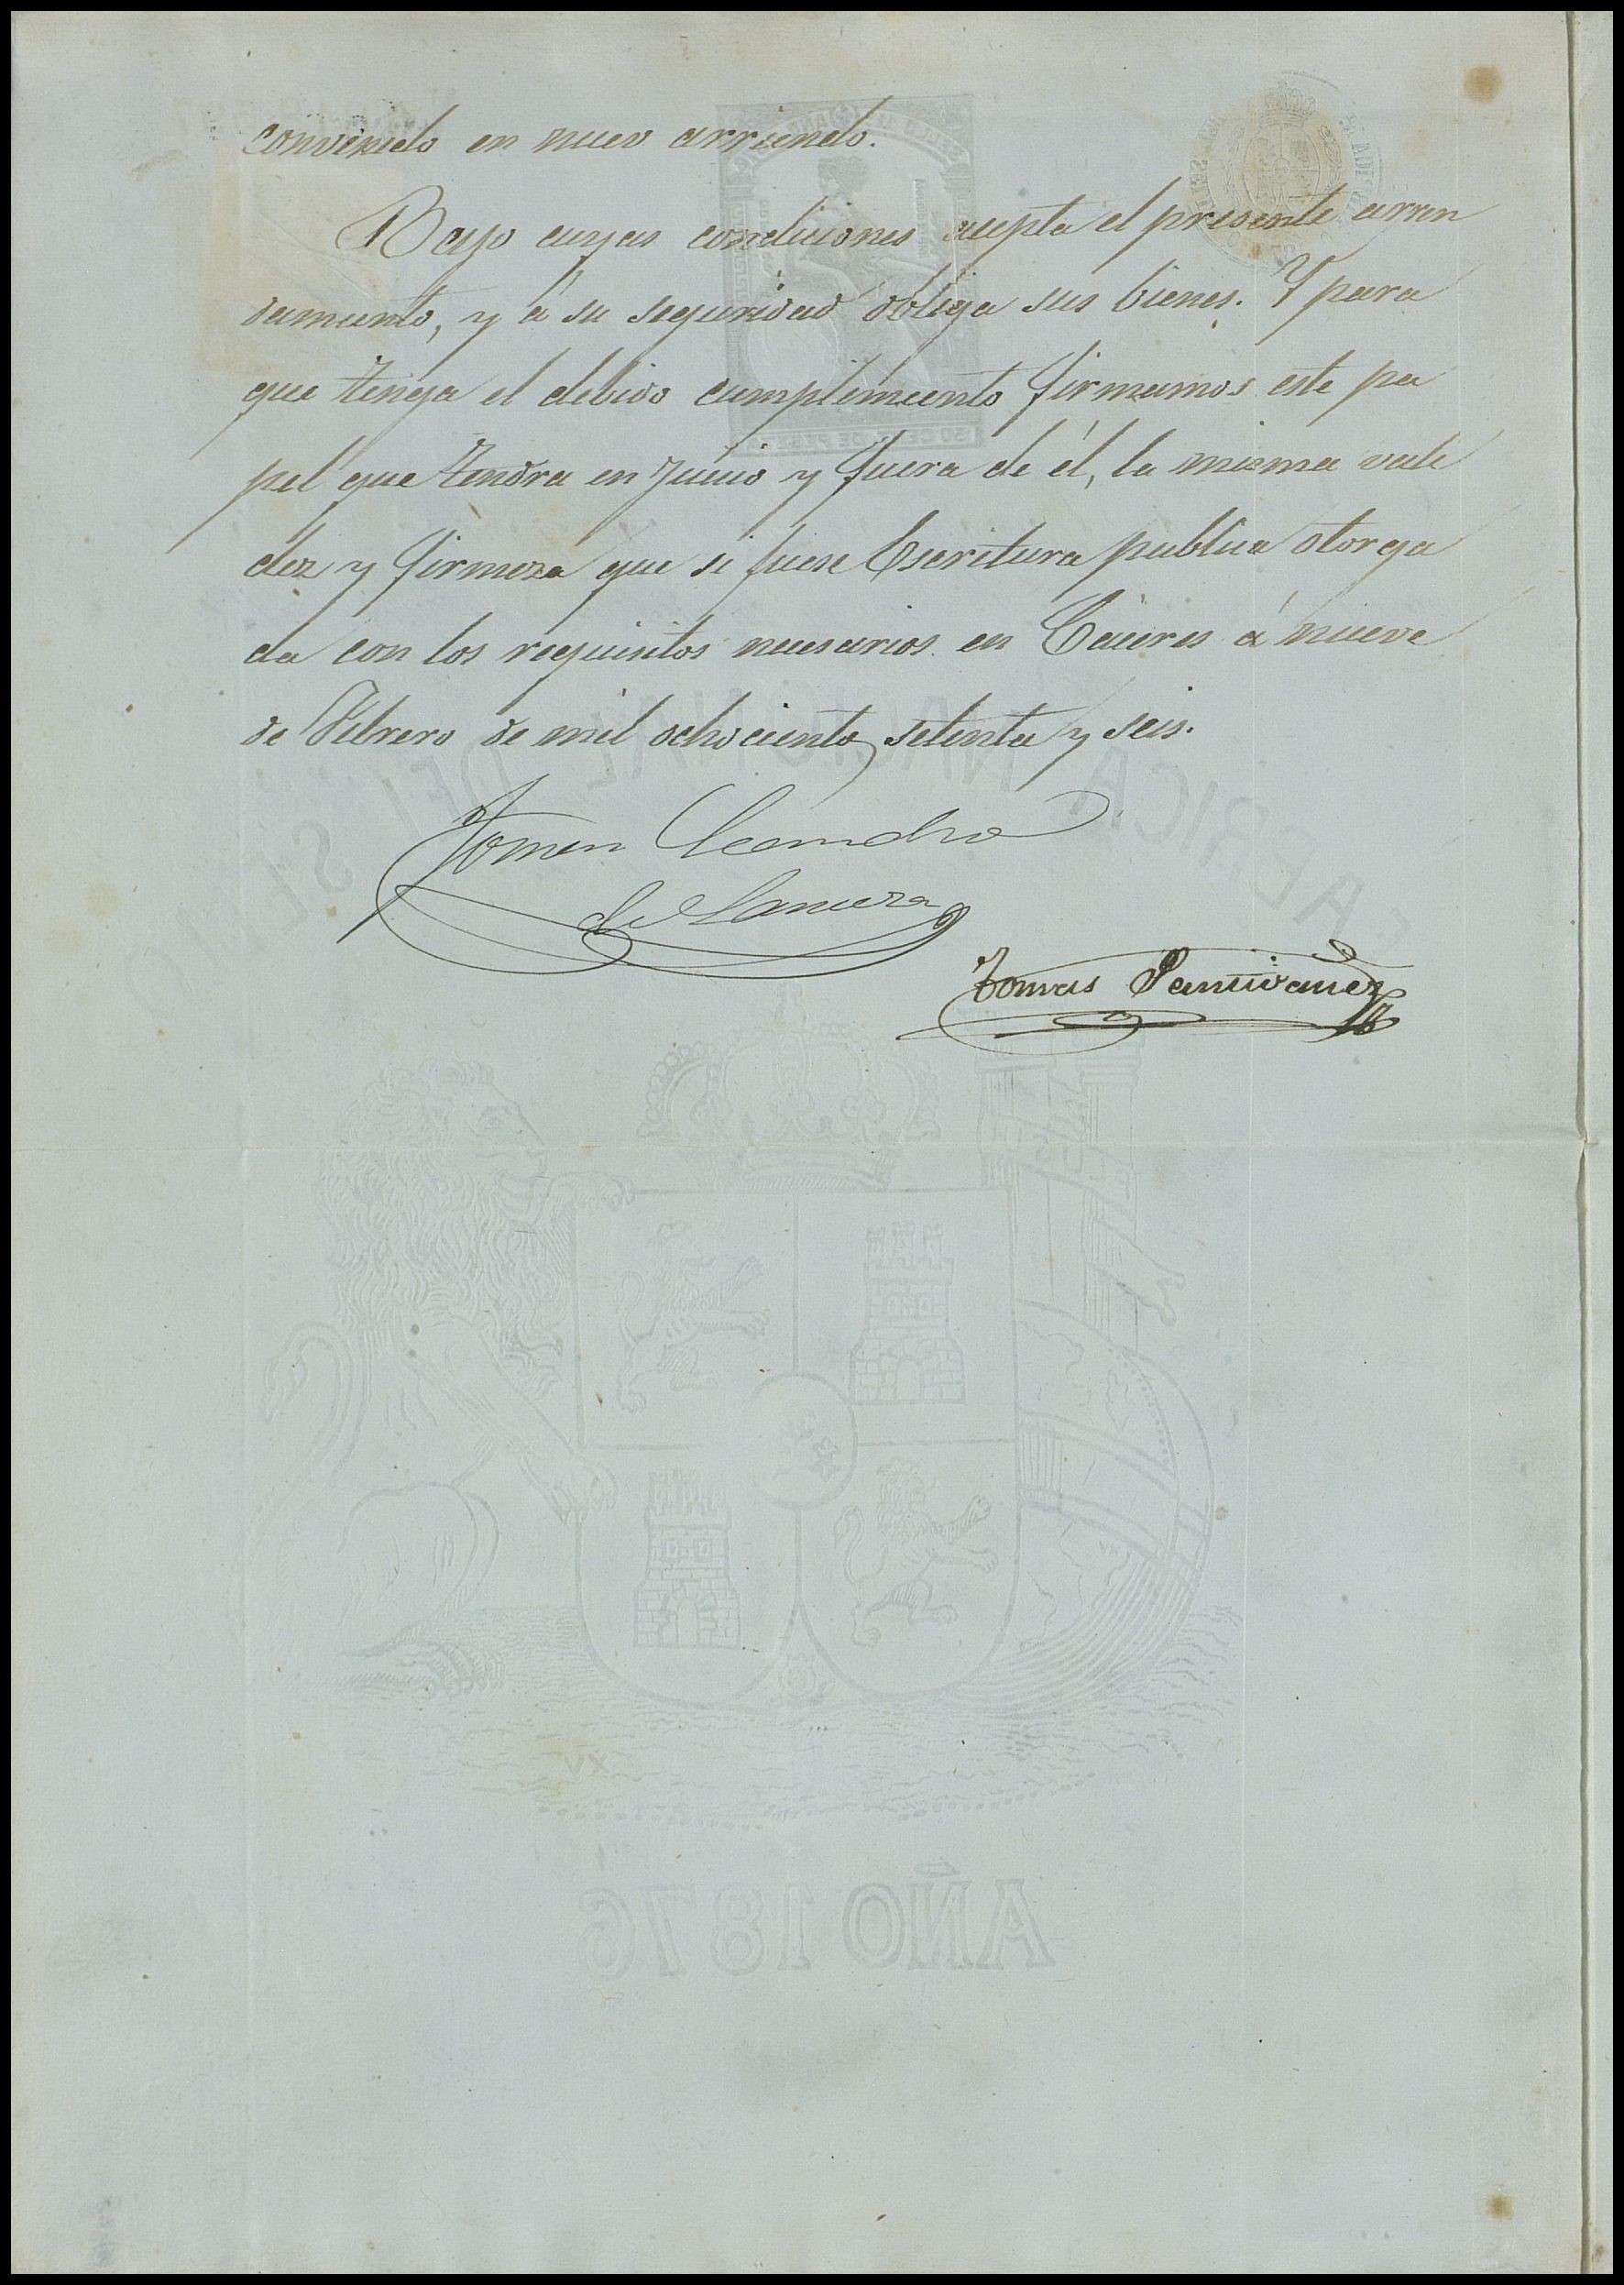 convenido en nuevo arriendo.
Bajo cuyas condiciones acepta el presente arren
damiento, y á su seguridad obliga sus bienes. Y para
que tenga el debido cumplimiento firmamos este pa
pel que tendra en juicio y fuera de él, la misma vali
dez y firmeza que si fuese Escritura publica otorga
da con los requisitos necesarios en Cáceres á nueve
de Febrero de mil ochocientos setenta y seis.
Leandro
de
Tomas
FABRICA NACIONAL DEL SELLO
AÑO 1876